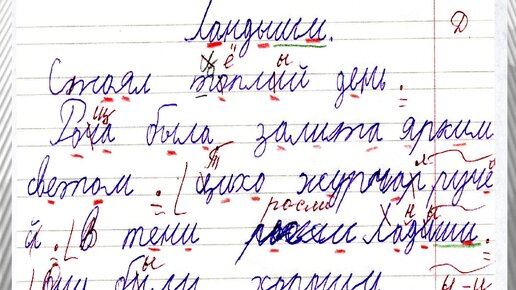 Ландыши. Д
Стоял тёплый день.
Роща была залита ярким
светом. Тихо журчал ручё
й. В тени росли Хадыши.
Они были хороши ы-и